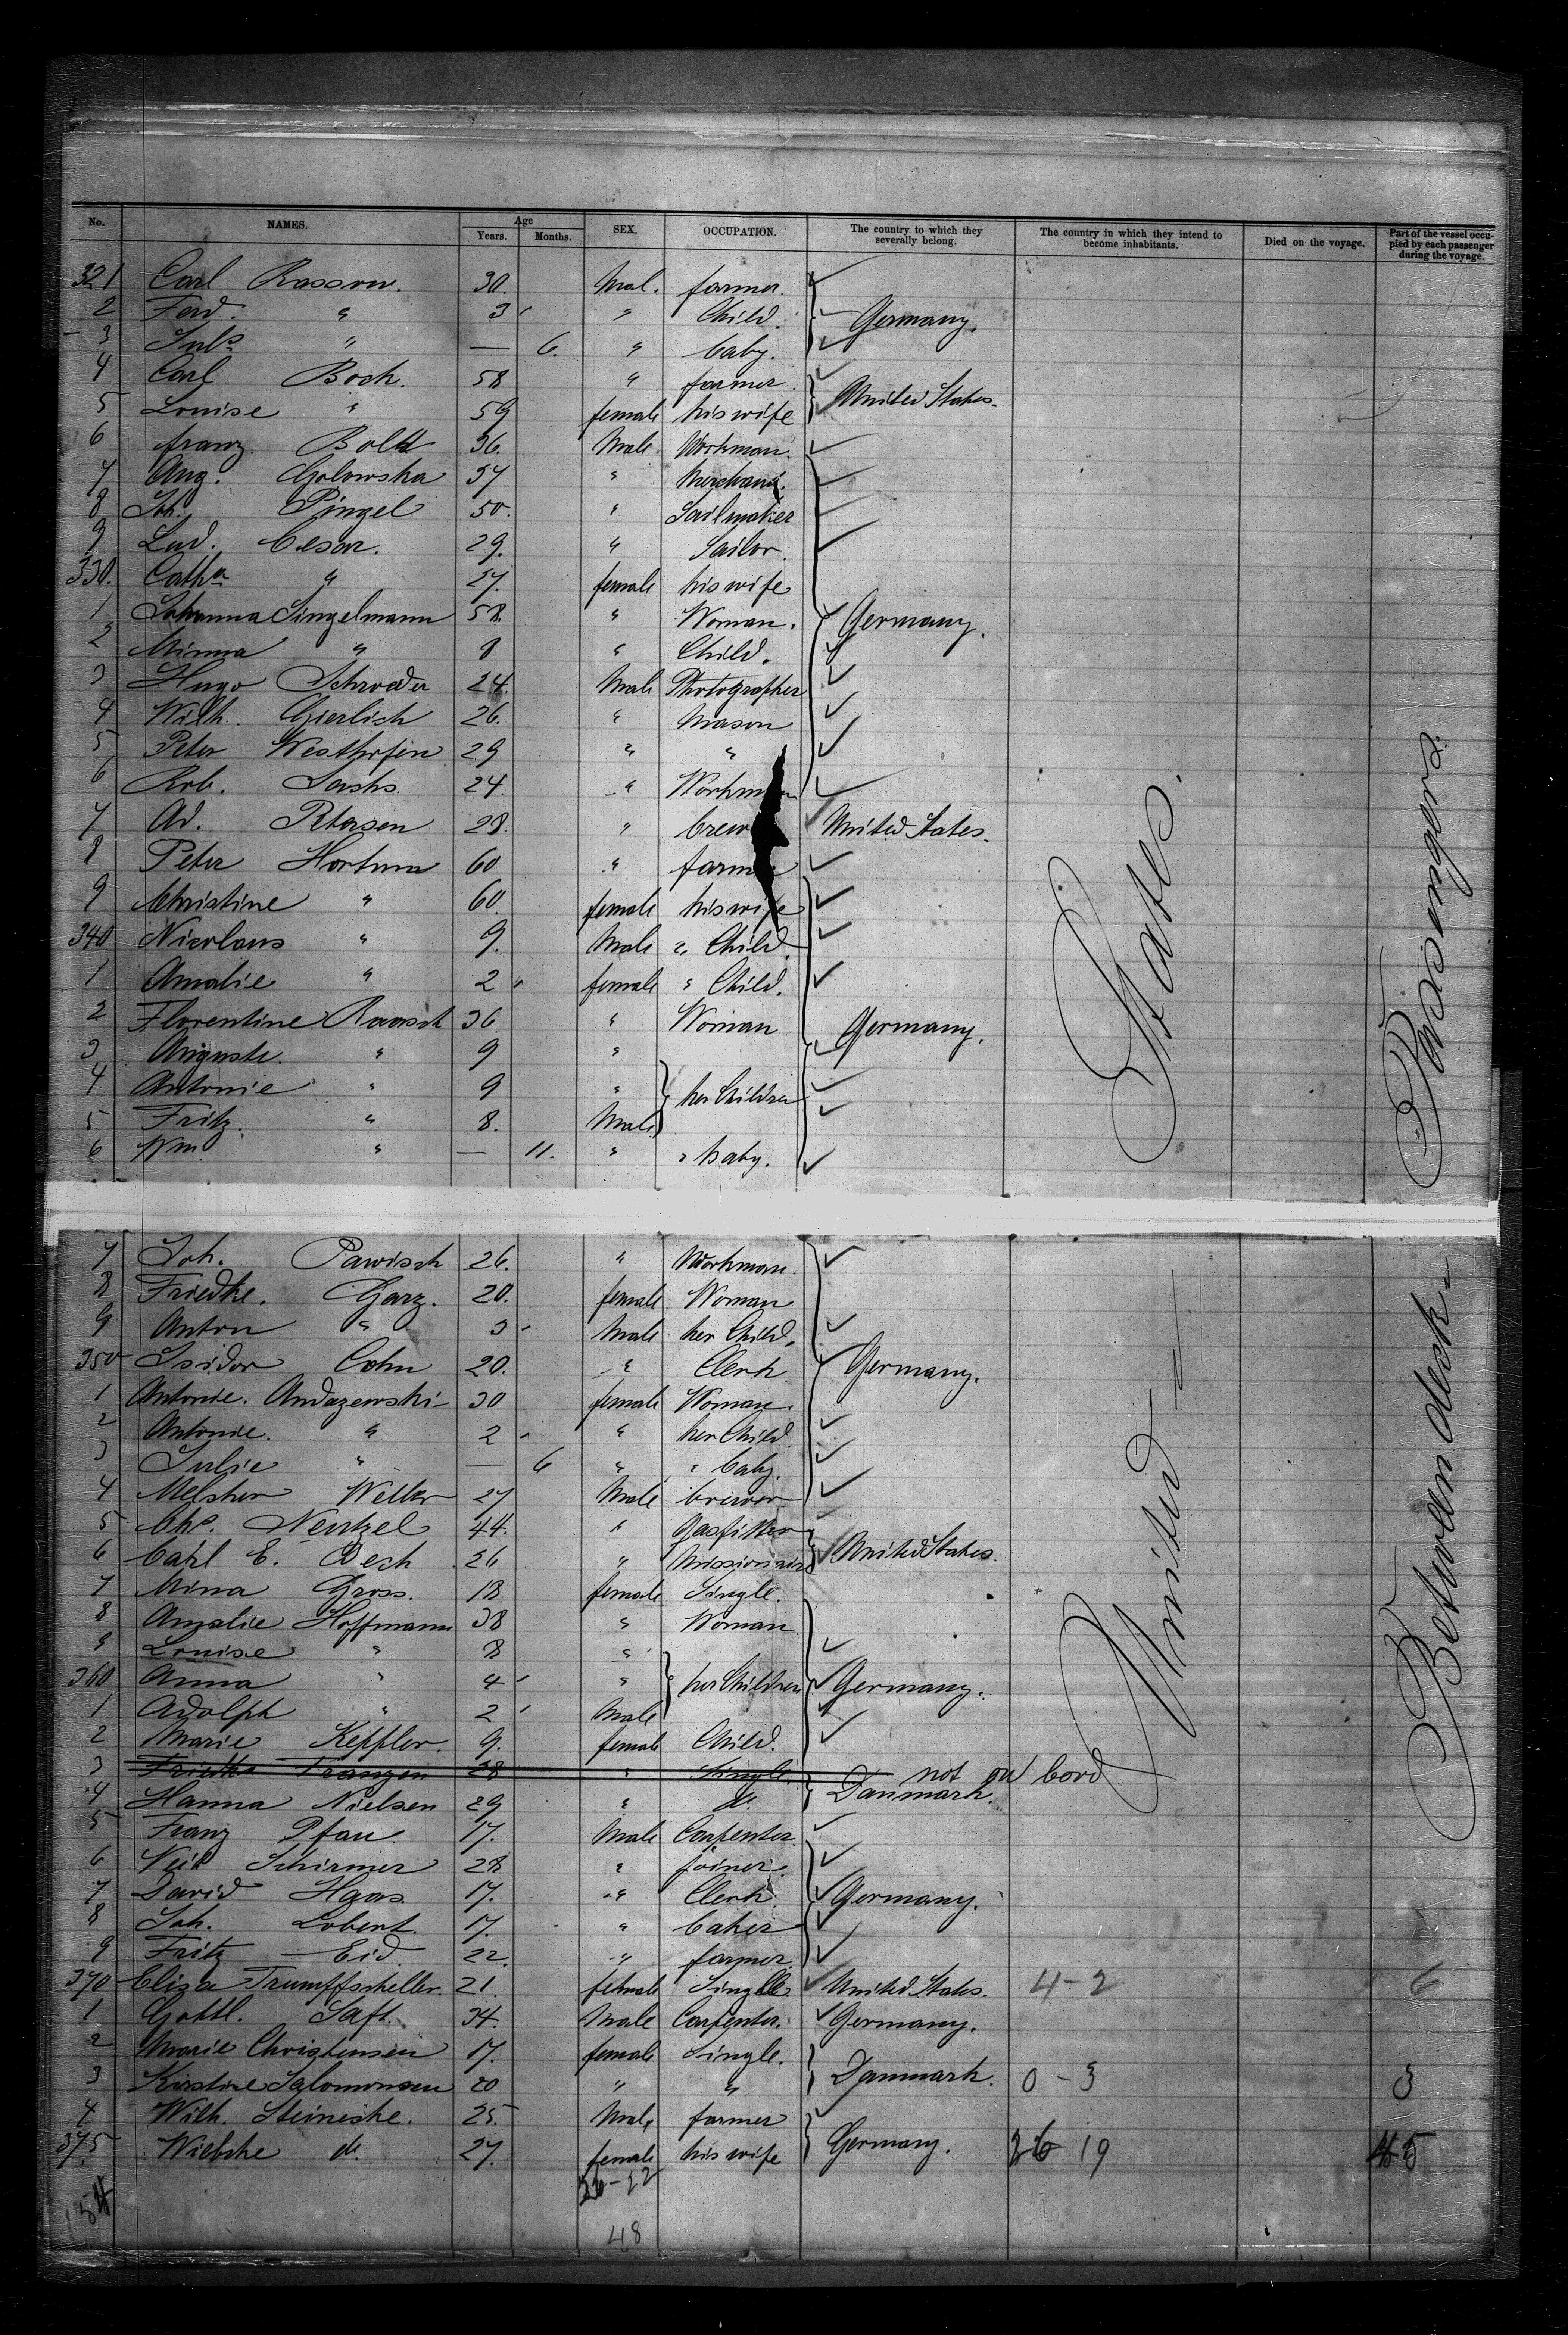 No. NAMES. Age Years. Months. SEX. OCCUPATION. The country to which they severally belong. The country in which they intend to become inhabitants. Died on the voyage. Part of the vessel occupied by each passenger during the voyage.
321 Carl Rassow. 30. Mal. farmer.
2 Ferd. " 3 " Child. Germany.
3 " — 6. " baby.
4 Carl Boch. 58 " farmer.
5 Louise " 59 female his wife United States.
6 franz. Boldt 36. Male Workman.
7 Aug. Golowska 37 " Merchant.
8 Joh. Pingel 50. " Sailmaker
9 Lud. Cesar. 29. " Sailor.
330. Catha " 27. female his wife
1 Johanna Singelmann 58. " Woman. Germany.
2 Minna " 8 " Child.
3 Hugo Schroeder 24. Male Photographer
4 Wilh. Gierlich 26. " Mason
5 Peter Westhofen 29 " "
6 Rob. Sachs. 24. " Workman
7 Ad. Petersen 28. " brew United States.
8 Peter Hortum 60 " farmer
9 Christine " 60. female his wife
340 Nicolaus " 9. Male " Child.
1 Amalie " 2 female " Child.
2 Florentine Raasch 36 " Woman Germany.
3 Auguste. " 9 "
4 Antonie " 9 " her Children
5 Fritz. " 8. Male
6 Wm. " — 11. " " baby.
7 Joh. Pawisch 26. " Workman.
8 Friedke. Garz. 20. female Woman
9 Anton " 3 Male her Child.
350 Isidor Cohn 20. " Clerk Germany.
1 Antonie. Andazewski 30 female Woman.
2 Antonie. " 2 " her Child
3 Julie " — 6 " " baby.
4 Melchior Weller 27 Male brewer
5 Chs. Neutzel 44. " Gasfitter
6 Carl E. Bech 26 " Missionair United States.
7 Mina Gross. 18 female Single.
8 Amalie Hoffmann 38 " Woman
9 Louise " 8 "
360 Anna " 4 " her Children Germany.
1 Adolph " 2 Male
2 Marie Keppler. 9. female Child.
3 Franzen 28 " Single. not on bord
4 Hanna Nielsen 29 " do. Danmark.
5 Franz Pfau. 17. Male Carpenter.
6 Veit Schirmer 28 " joiner.
7 David Haas. 17. " Clerk Germany.
8 Joh. Lobert. 17. " baker
9 Fritz Eid. 22. " farmer.
370 Elisa Trumpffscheller. 21. female Single United States. 4-2 6
1 Gottl. Saft. 34. Male Carpenter. Germany.
2 Marie Christensen 17. female Single.
3 Kirstine Salomonsen 20 " " Danmark. 0-3 3
4 Wilh. Steineke. 25. Male farmer
375. Wiebke do. 27. female his wife Germany. 26 19 45
48
United States.
Between deck Passengers.